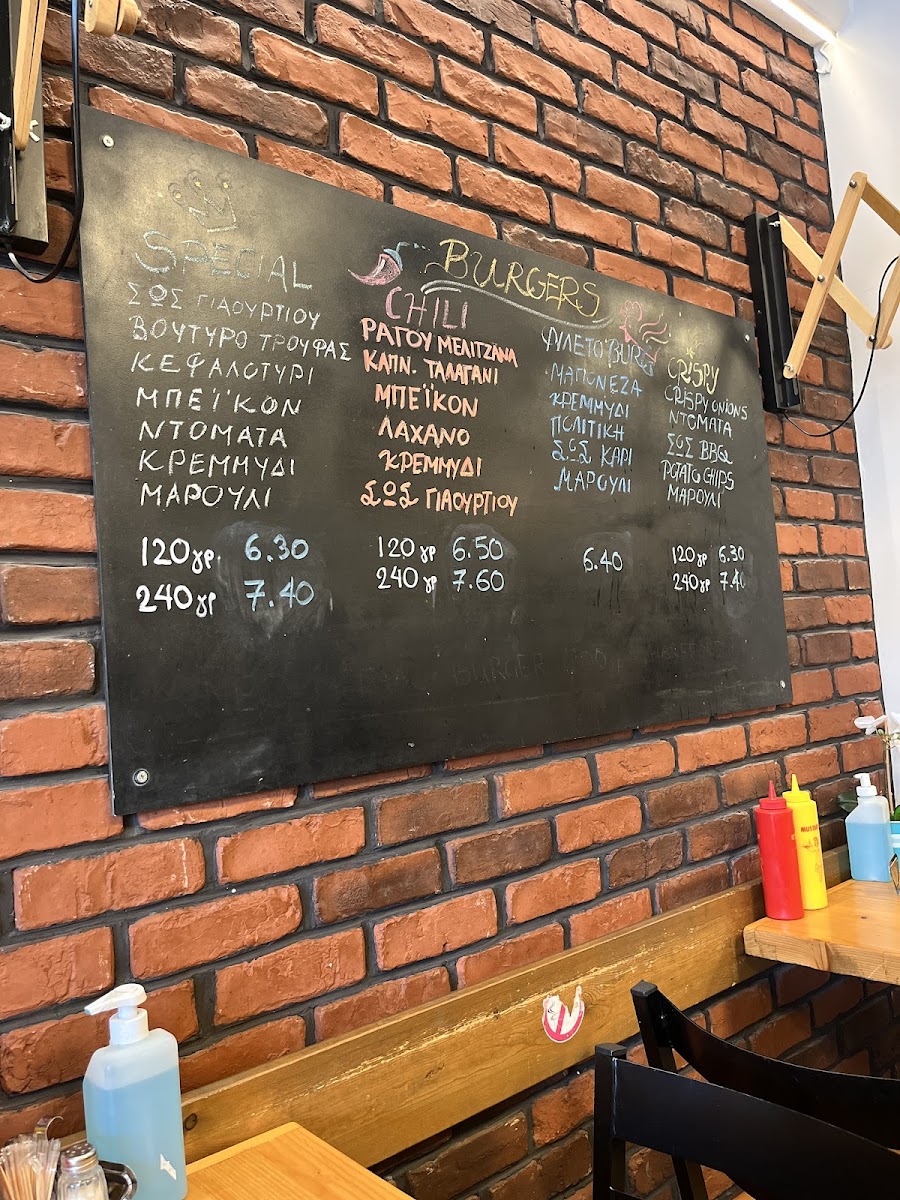 BURGERS
SPECIAL
ΣΩΣ ΓΙΑΟΥΡΤΙΟΥ
ΒΟΥΤΥΡΟ ΤΡΟΥΦΑΣ
ΚΕΦΑΛΟΤΥΡΙ
ΜΠΕΪΚΟΝ
ΝΤΟΜΑΤΑ
ΚΡΕΜΜΥΔΙ
ΜΑΡΟΥΛΙ
120γρ. 6.30
240γρ 7.40
CHILI
ΡΑΓΟΥ ΜΕΛΙΤΖΑΝΑ
ΚΑΠΝ. ΤΑΛΑΓΑΝΙ
ΜΠΕΪΚΟΝ
ΛΑΧΑΝΟ
ΚΡΕΜΜΥΔΙ
ΣΩΣ ΓΙΑΟΥΡΤΙΟΥ
120γρ 6.50
240γρ 7.60
ΦΙΛΕΤΟ BURG
ΜΑΓΙΟΝΕΖΑ
ΚΡΕΜΜΥΔΙ
ΠΟΛΙΤΙΚΗ
ΣΩΣ ΚΑΡΙ
ΜΑΡΟΥΛΙ
6.40
CRISPY
CRISPY ONIONS
ΝΤΟΜΑΤΑ
ΣΩΣ BBQ
POTATO CHIPS
ΜΑΡΟΥΛΙ
120γρ 6.30
240γρ 7.40
BURGER